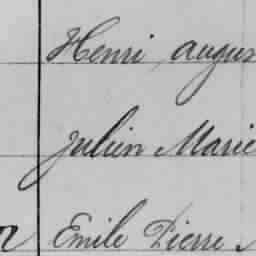 Henri, augus
Julien Marie
Emile Pierre